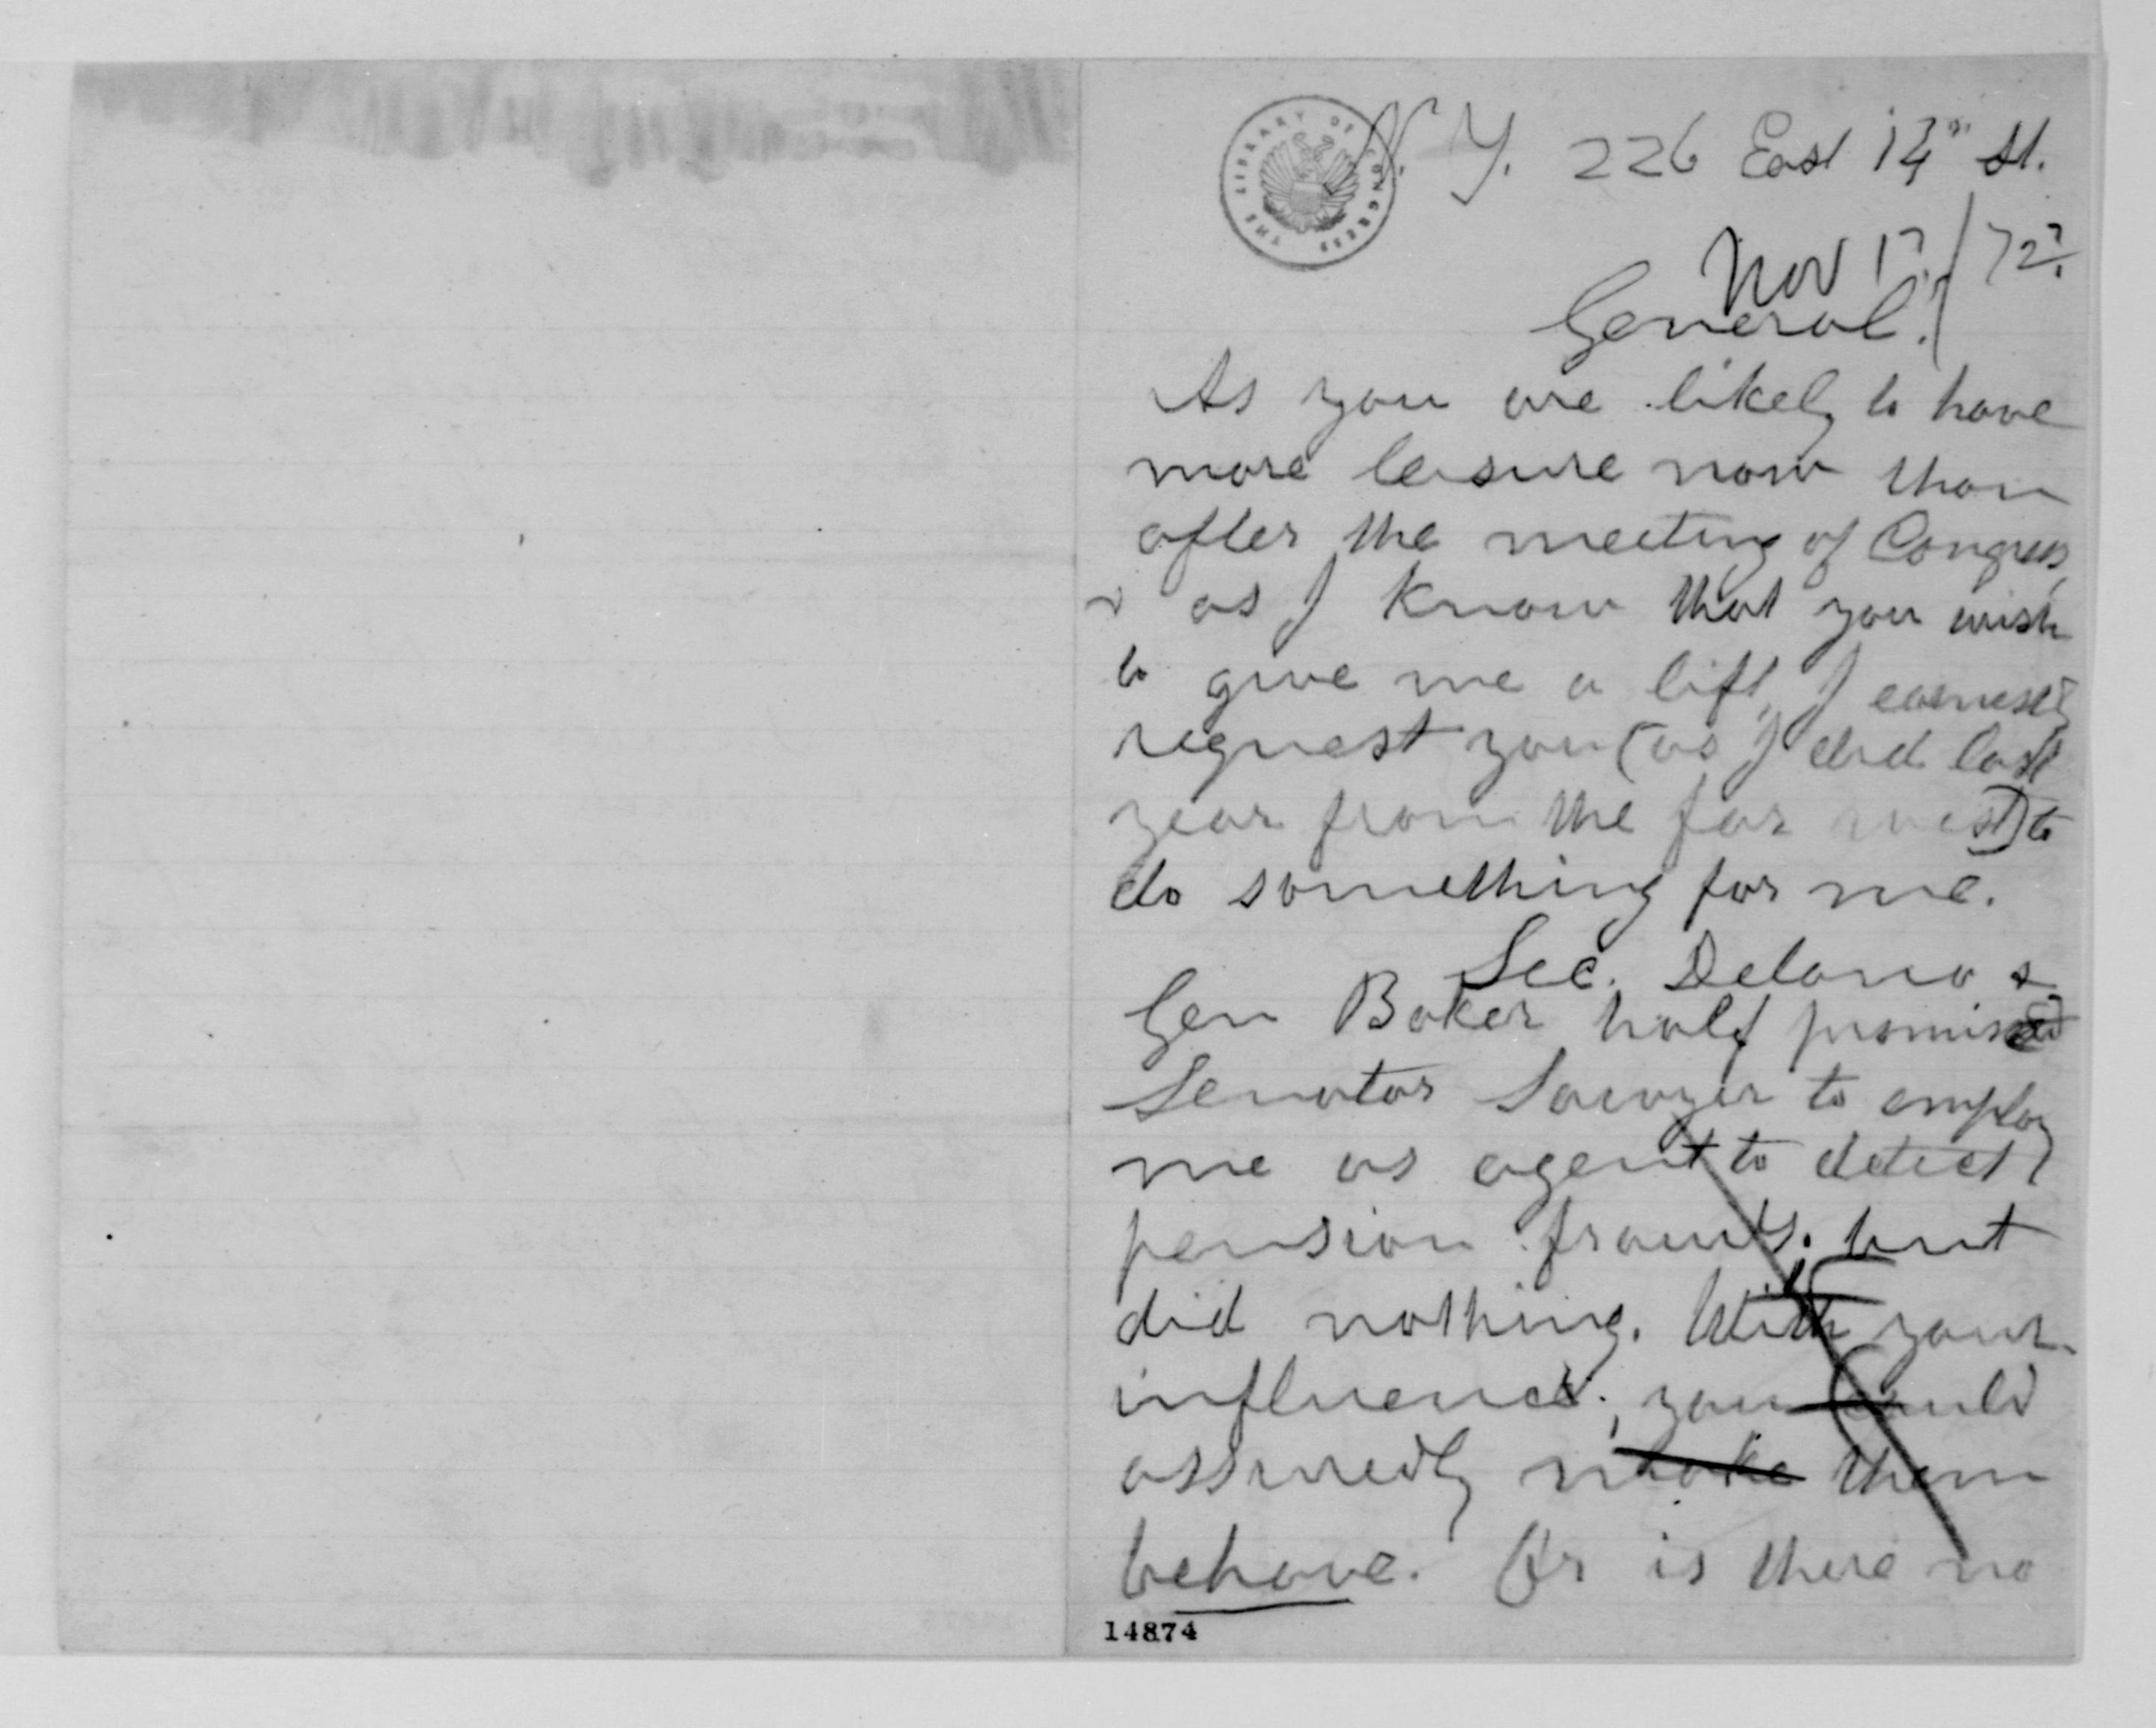 N. Y. 226 East 14th St.
Nov 17/72.
General!
As you are likely to have
more leisure now than
after the meeting of Congress,
& as I know that you wish
to give me a lift, I earnestly
request you (as I did last
year from the far west) to
do something for me.
Sec. Delano &
Gen Baker half promised
Senator Sawyer to employ
me as agent to detect
pension frauds, but
did nothing. With your
influence, you could
assuredly make them
behave. Or is there no
14874
THE LIBRARY OF CONGRESS